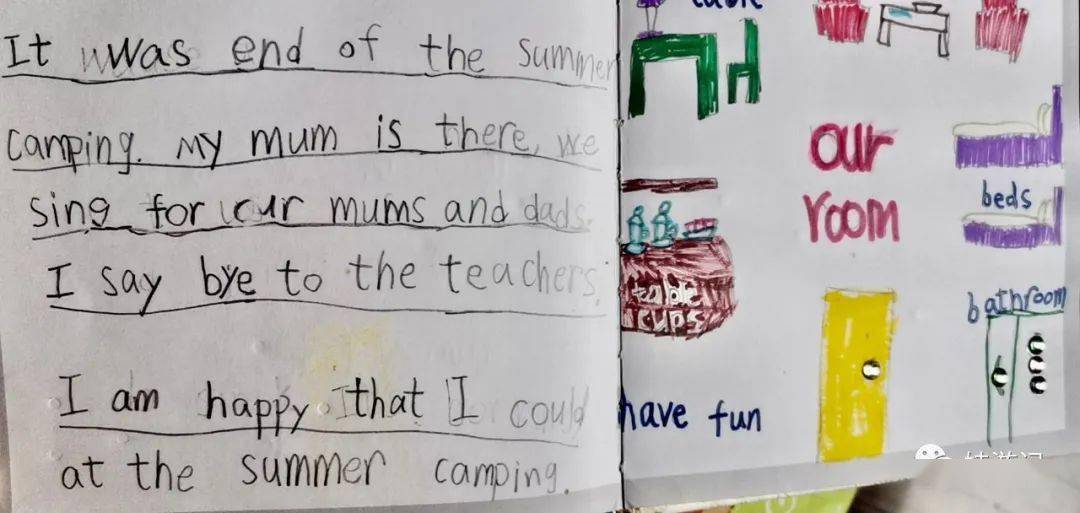 It was end of the summer
camping. My mum is there, we
sing for our mums and dads.
I say bye to the teachers.
I am happy that I could have fun
at the summer camping.
our
room
beds
table
cups
bathroom